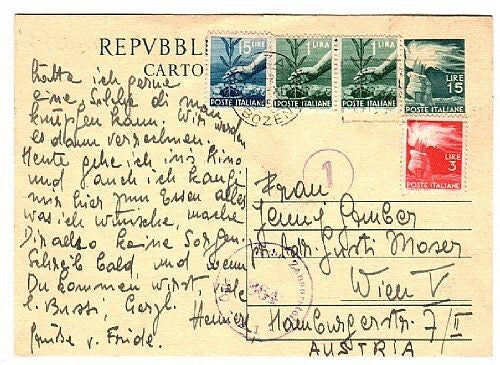 REPVBBLI
CARTO
15 LIRE
POSTE ITALIANE
1 LIRA
POSTE ITALIANE
1 LIRA
POSTE ITALIANE
LIRE 15
POSTE ITALIANE
LIRE 3
POSTE ITALIANE
BOZEN
1
hätte ich gerne
eine, solche di man
knüpfen kann. Wir werden
es dann verrechnen.
Heute gehe ich ins Kino
und auch ich kaufe
mir hier zum Essen alles
was ich wünsche, mache
Dir also keine Sorgen.
Schreib bald, und wenn
Du kommen wirst, viele
l. Bussi,
Grüße v. Friede.
Frau
Jenny Gruber
pr. Adr. Gusti Moser
Wien V
Hamburgerstr. 7/II
AUSTRIA